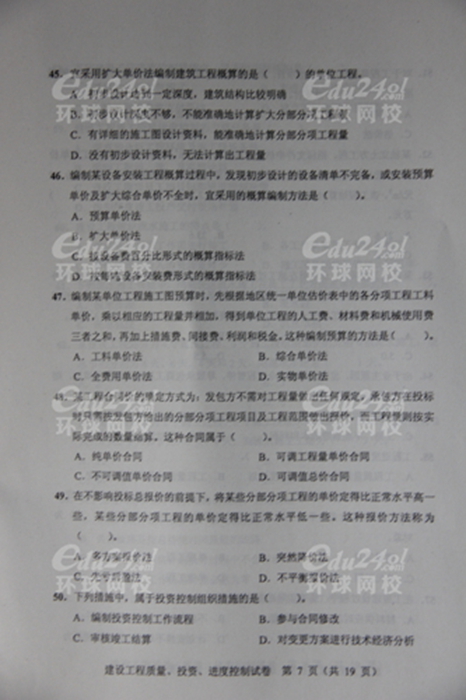 45. 宜采用扩大单价法编制建筑工程概算的是（　　）的单位工程。
A. 初步设计达到一定深度，建筑结构比较明确
B. 初步设计深度不够，不能准确地计算扩大分部分项工程量
C. 有详细的施工图设计资料，能准确地计算分部分项工程量
D. 没有初步设计资料，无法计算出工程量
46. 编制某设备安装工程概算过程中，发现初步设计的设备清单不完备，或安装预算
单价及扩大综合单价不全时，宜采用的概算编制方法是（　　）。
A. 预算单价法
B. 扩大单价法
C. 按设备费百分比形式的概算指标法
D. 按每吨设备安装费形式的概算指标法
47. 编制某单位工程施工图预算时，先根据地区统一单位估价表中的各分项工程工料
单价，乘以相应的工程量并相加，得到单位工程的人工费、材料费和机械使用费
三者之和，再加上措施费、间接费、利润和税金。这种编制预算的方法是（　　）。
A. 工料单价法 B. 综合单价法
C. 全费用单价法 D. 实物单价法
48. 某工程合同价的确定方式为：发包方不需对工程量做出任何规定，承包方在投标
时只需按发包方给出的分部分项工程项目及工程范围做出报价，而工程量则按实
际完成的数量结算。这种合同属于（　　）。
A. 纯单价合同 B. 可调工程量单价合同
C. 不可调值单价合同 D. 可调值总价合同
49. 在不影响投标总报价的前提下，将某些分部分项工程的单价定得比正常水平高一
些，某些分部分项工程的单价定得比正常水平低一些。这种报价方法称为
（　　）。
A. 多方案报价法 B. 突然降价法
C. 先亏后盈法 D. 不平衡报价法
50. 下列措施中，属于投资控制组织措施的是（　　）。
A. 编制投资控制工作流程 B. 参与合同修改
C. 审核竣工结算 D. 对变更方案进行技术经济分析
建设工程质量、投资、进度控制试卷 第 7 页（共 19 页）
Edu24ol
环球网校
Edu24ol
环球网校
Edu24ol
环球网校
Edu24ol
环球网校
Edu24ol
环球网校
Edu24ol
环球网校
Edu24ol
环球网校
Edu24ol
环球网校